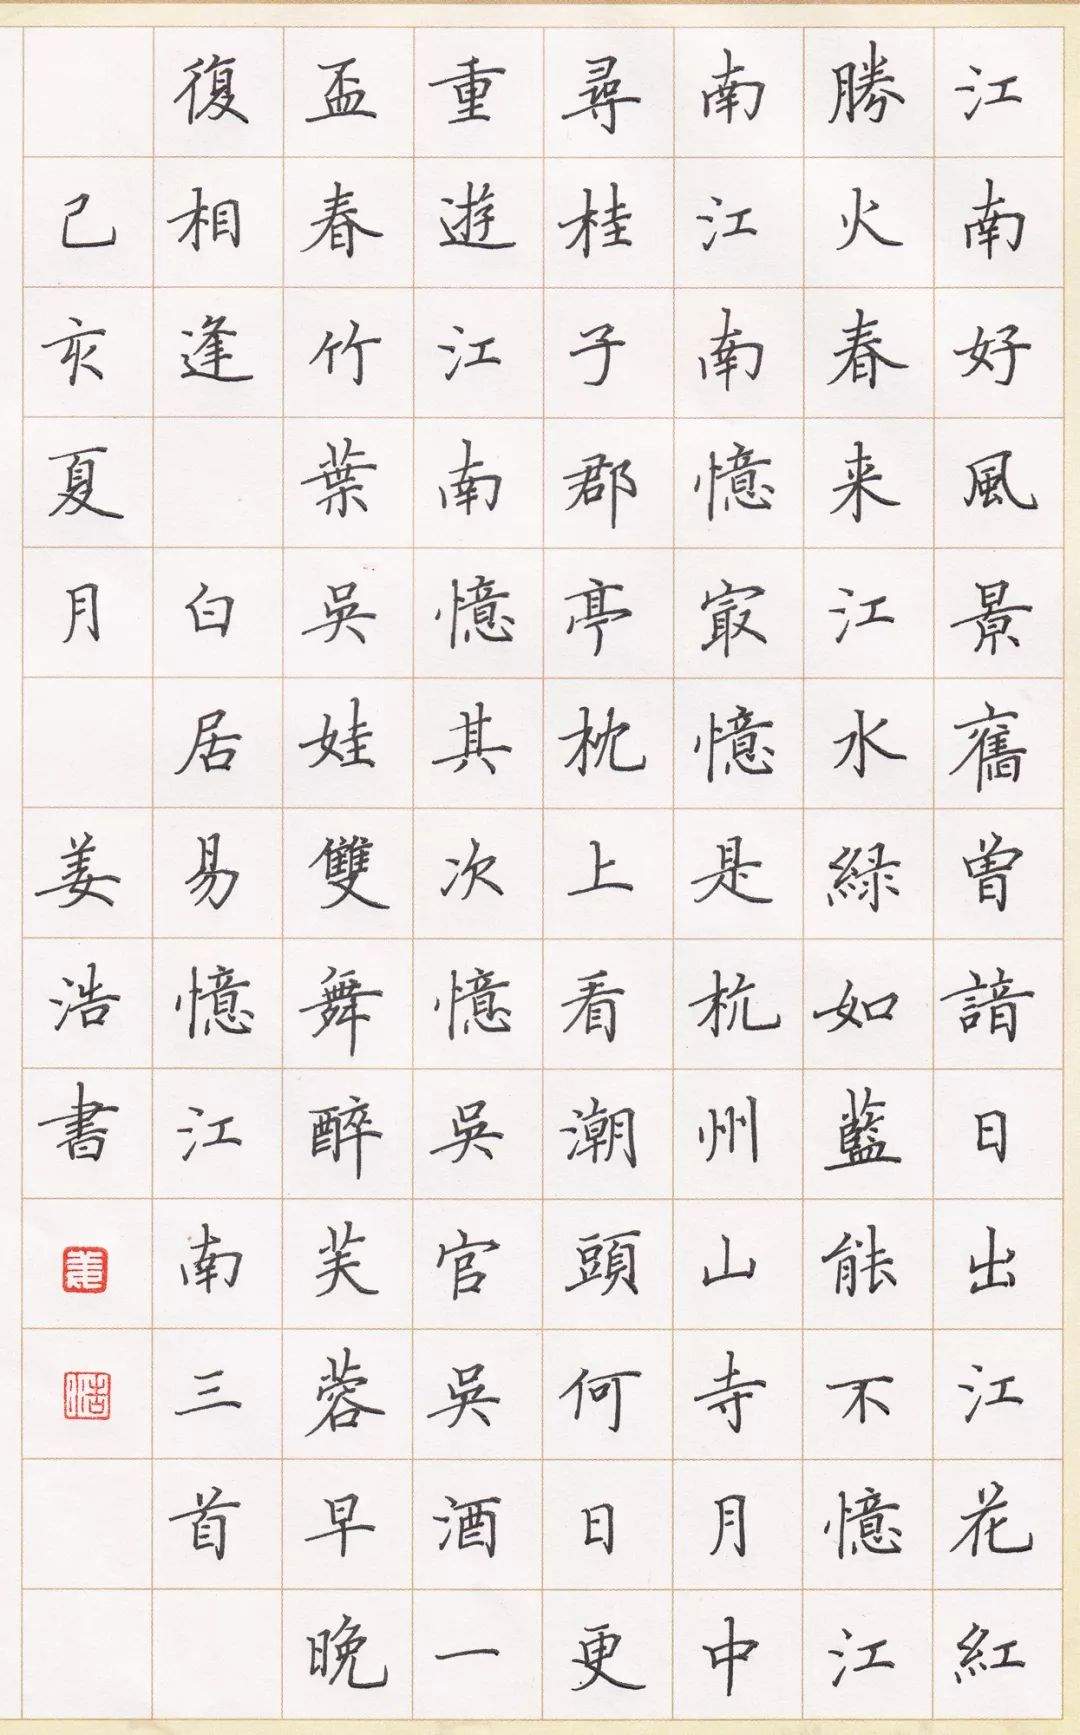 江南好風景舊曾諳日出江花紅
勝火春来江水緑如藍能不憶江
南江南憶寂憶是杭州山寺月中
尋桂子郡亭枕上看潮頭何日更
重遊江南憶其次憶吳官吳酒一
盃春竹葉吳娃雙舞醉芙蓉早晚
復相逢 白居易憶江南三首
己亥夏月 姜浩書
姜
浩